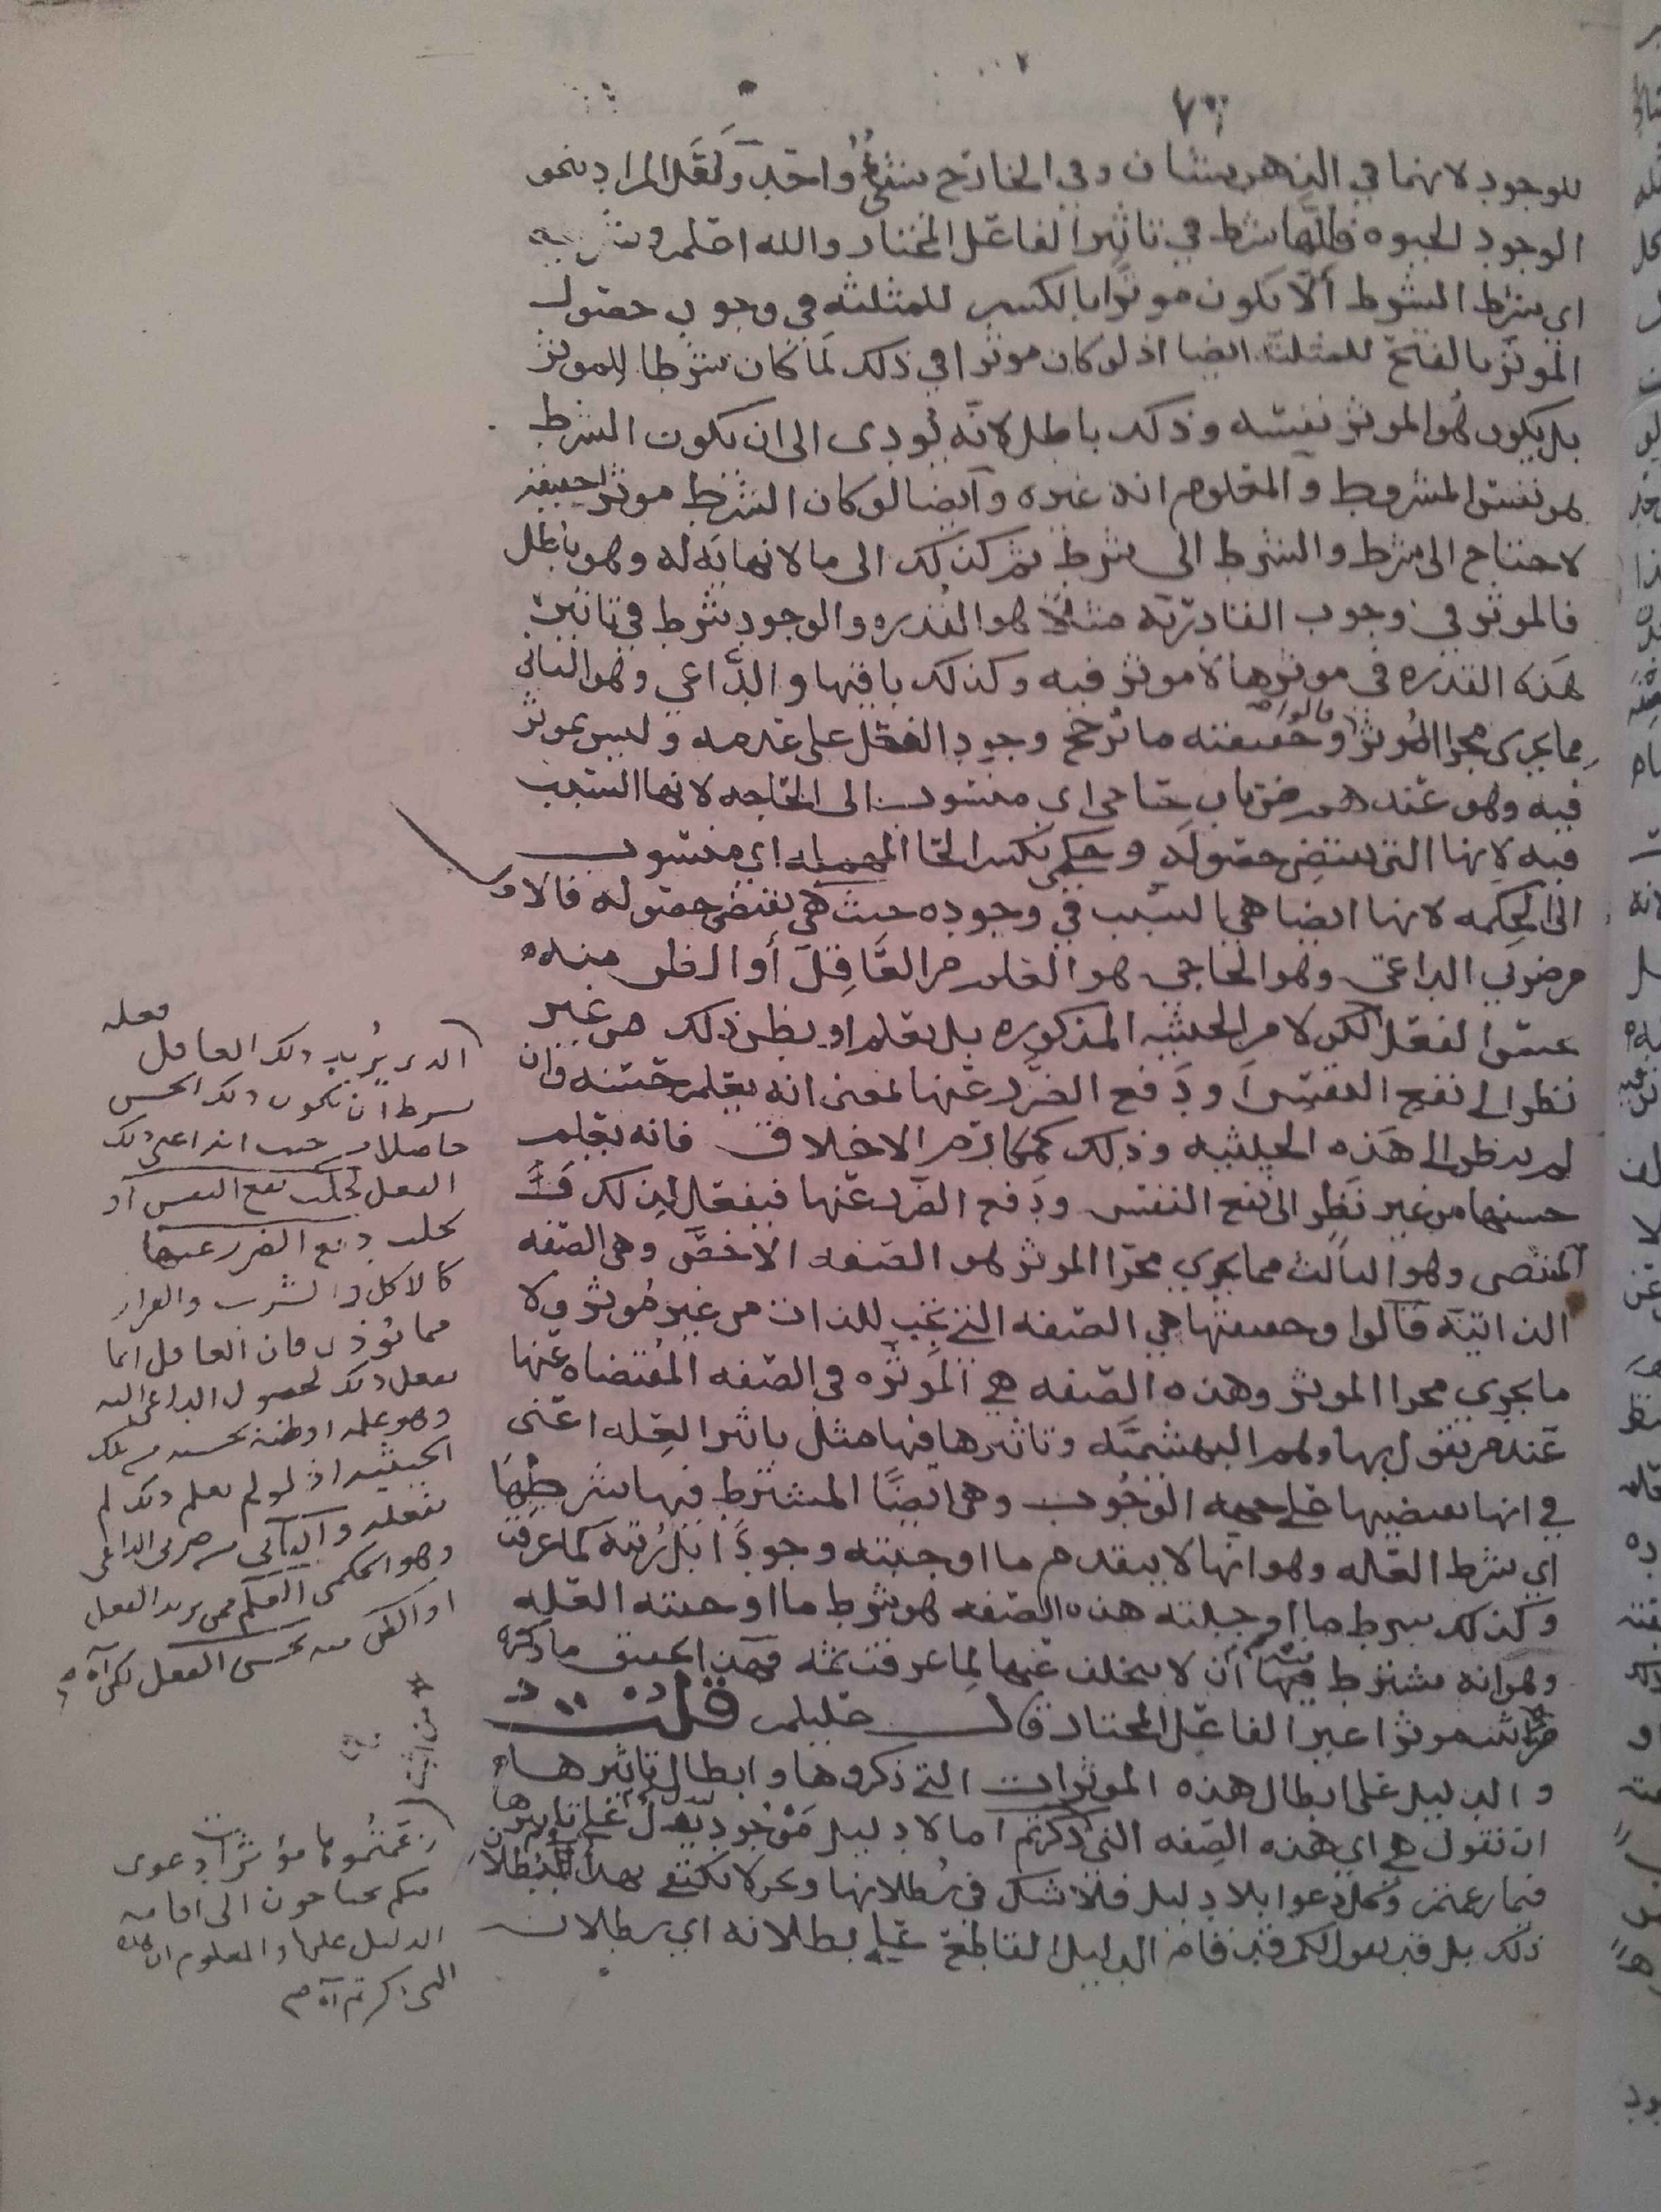 ٧٦
للوجود لانهما في الذهن شيئان وفي الخارج شيء واحد ولعل المراد بنحو
الوجود الحيوه فانها شرط في تاثير الفاعل المختار والله اعلم
اي شرط الشروط ألّا يكون موثرا بالكسر للمثلثه في وجوب حصول
الموثَّر بالفتح للمثلث ايضا اذ لو كان موثرا في ذلك لَما كان شرطا للموثر
بل يكون هُو الموثر نفسه وذلك باطل لانّه يُودى الى ان يكون الشرط
هو نفس المشروط والمعلوم انه غيره وأيضا لو كان الشرط موثر حقيقة
لاحتاج الى شرط والشرط الى شرط ثم كذلك الى ما لا نهاية له وهو باطل
فالموثر في وجوب القادريّه مثلا هو القدره والوجود شرط في تاثير
هذه القدره في موثرها لا موثر فيه وكذلك باقيها والدَّاعي وهو الثاني
مما يجرى مجرا المُوثر قالوا وحقيقته ما يُرجح وجود الفعل على عدمه وليس بموثر
فيه وهو عندهم ضربان حاجي اي منسوب الى الحاجه لانها السبب
فيه لانها التي تقتضي حصوله وحِكمي بكسر الحا المهمله اي منسوب
الى الحِكمه لانها ايضا هي السبب في وجوده حيث هي تقتضي حصوله فالاول
من ضربي الداعي وهو الحاجي هو العلم من العَاقِل أو الظن منه
بحسن الفعل لكن لا من الحيثيه المذكوره بل يعلم او يظن ذلك من غير
نظر الى نفع النفس او دَفع الضرر عنها بمعنى انه يعلم حسنه وان
لم ينظر الى هَذه الحيثيه وذلك كمكارم الاخلاق فانه يعلم
حسنها من غير نَظرٍ الى نفع النفس ودَفع الضرر عنها فيفعل لذلك
المقتضي وهو الثالث مما يجرى مجرا الموثر هو الصفه الاخصَّ وهى الصفه
الذاتيّه قالوا وحقيقتها هي الصفه التي تجب للذات من غير مُوثر ولا
ما يجري مجرا الموثر وهذه الصفه هي المُوثره في الصفه المُقتضاه عنها
عند من يقول بها وهم البهشميَّه وتاثيرها فيها مثل تاثير العِله اعني
في انها تقتضيها على جهه الوجُوب وهى ايضًا المشترط فيها شرطُهَا
اي شرط العله وهو انها لا يتقدم ما اوجبته وجودًا بل رُتبَه كما عرفت
وكذلك شرط ما أوجبته هذه الصفه هو شرط ما اوجبته العله
وهو انه يشترط فيها أن لا يتخلف عنها لِما عرفت ثمه فهذا تحقيق ما ذكره
من اثبت موثرا غير الفاعل المختار قال عليلم قلت
والدليل على ابطال هذه الموثرات التي ذكروها وابطال تاثيرها
ان نقول هي اي هذه الصِفه التي ذكرتم اما لا دليل مَوْجُود يدل على تاثيرها
فيما زعمتم وكل دعوا بلا دليل فلا شك في بُطلانها ونحن لا نكتفي بهذا
ذلك بل قد نقول لكم قد قام الدليل القاطع على بطلانه اي بطلان
فعله
الذي يُريد ذلك العاقل
بشرط ان يكون ذلك الحسن
حاصلا من حيث انه اعني ذلك
الفعل لجلب نفع النفس أو
لجلب دفع الضرر عنها
كالاكل والشرب والفرار
مما يُوذى فان العاقل انما
يفعل ذلك لحصول الداعي اليه
وهو علمه او ظنه بحسنه من تلك
الحيثيه اذ لو لم يعلم ذلك لم
يفعله والثاني من ضربي الداعي
وهو الحكمي العلم ممن يريد الفعل
او الظن منه بحسن الفعل لكن آه
زعَمتُموها مؤثرات دعوى
منكم تحتاجون الى اقامه
الدليل عليها والمعلوم ان هذه
التي ذكرتم آه